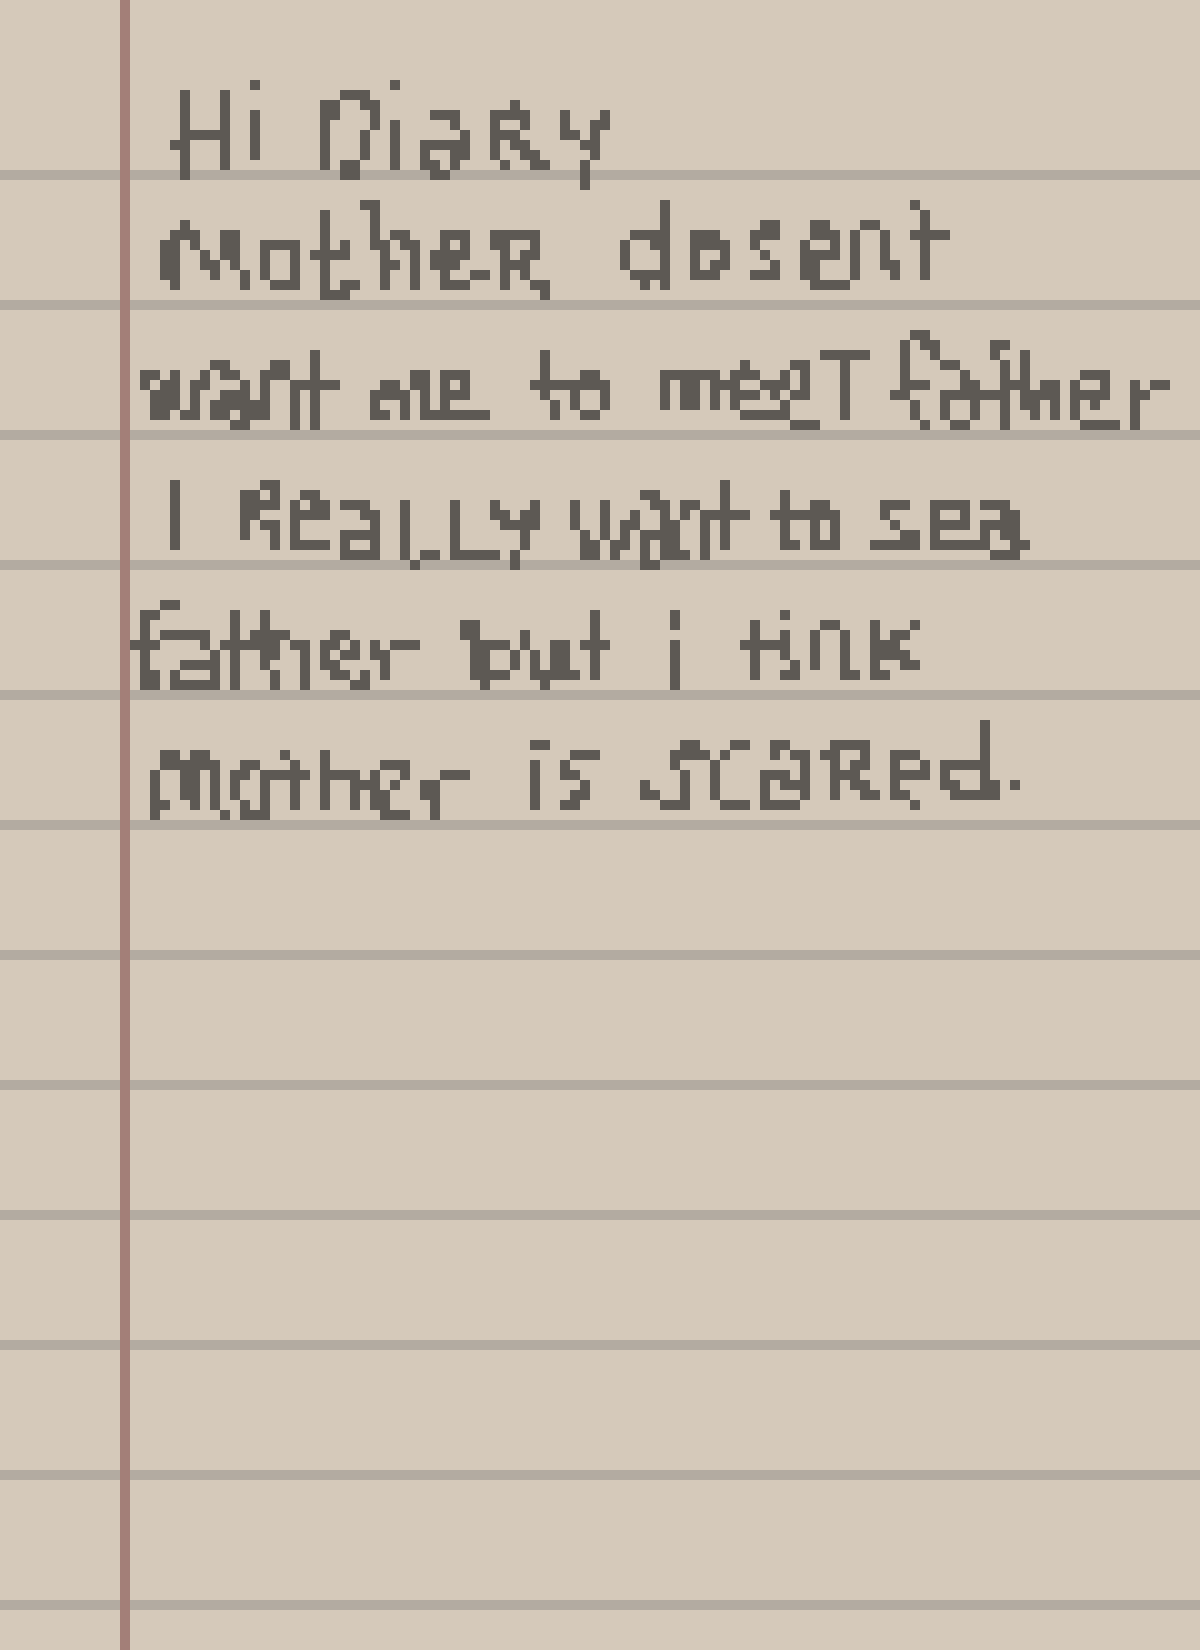 Hi DiaRy
MotheR dosent
want me to meeT father
I ReaLLy want to sea
father but i tink
mother is scaRed.